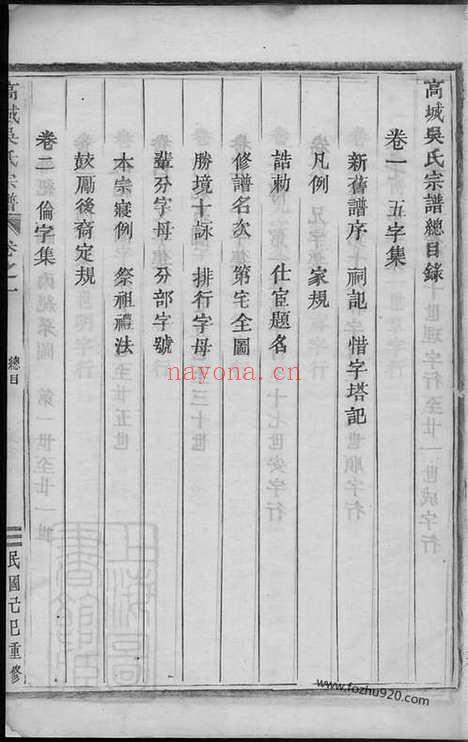 高城吳氏宗譜總目錄
卷一　五字集
新舊譜序　祠記　惜字塔記
凡例　家規
誥勅　仕宦題名
修譜名次　第宅全圖
勝境十詠　排行字母　三十世
輩分字母　分部字號
本宗寢例　祭祖禮法
鼓勵後裔定規
卷二　倫字集
高城吳氏宗譜　卷之一　總目　民國己巳重修
nayona.cn
www.fozhu920.com